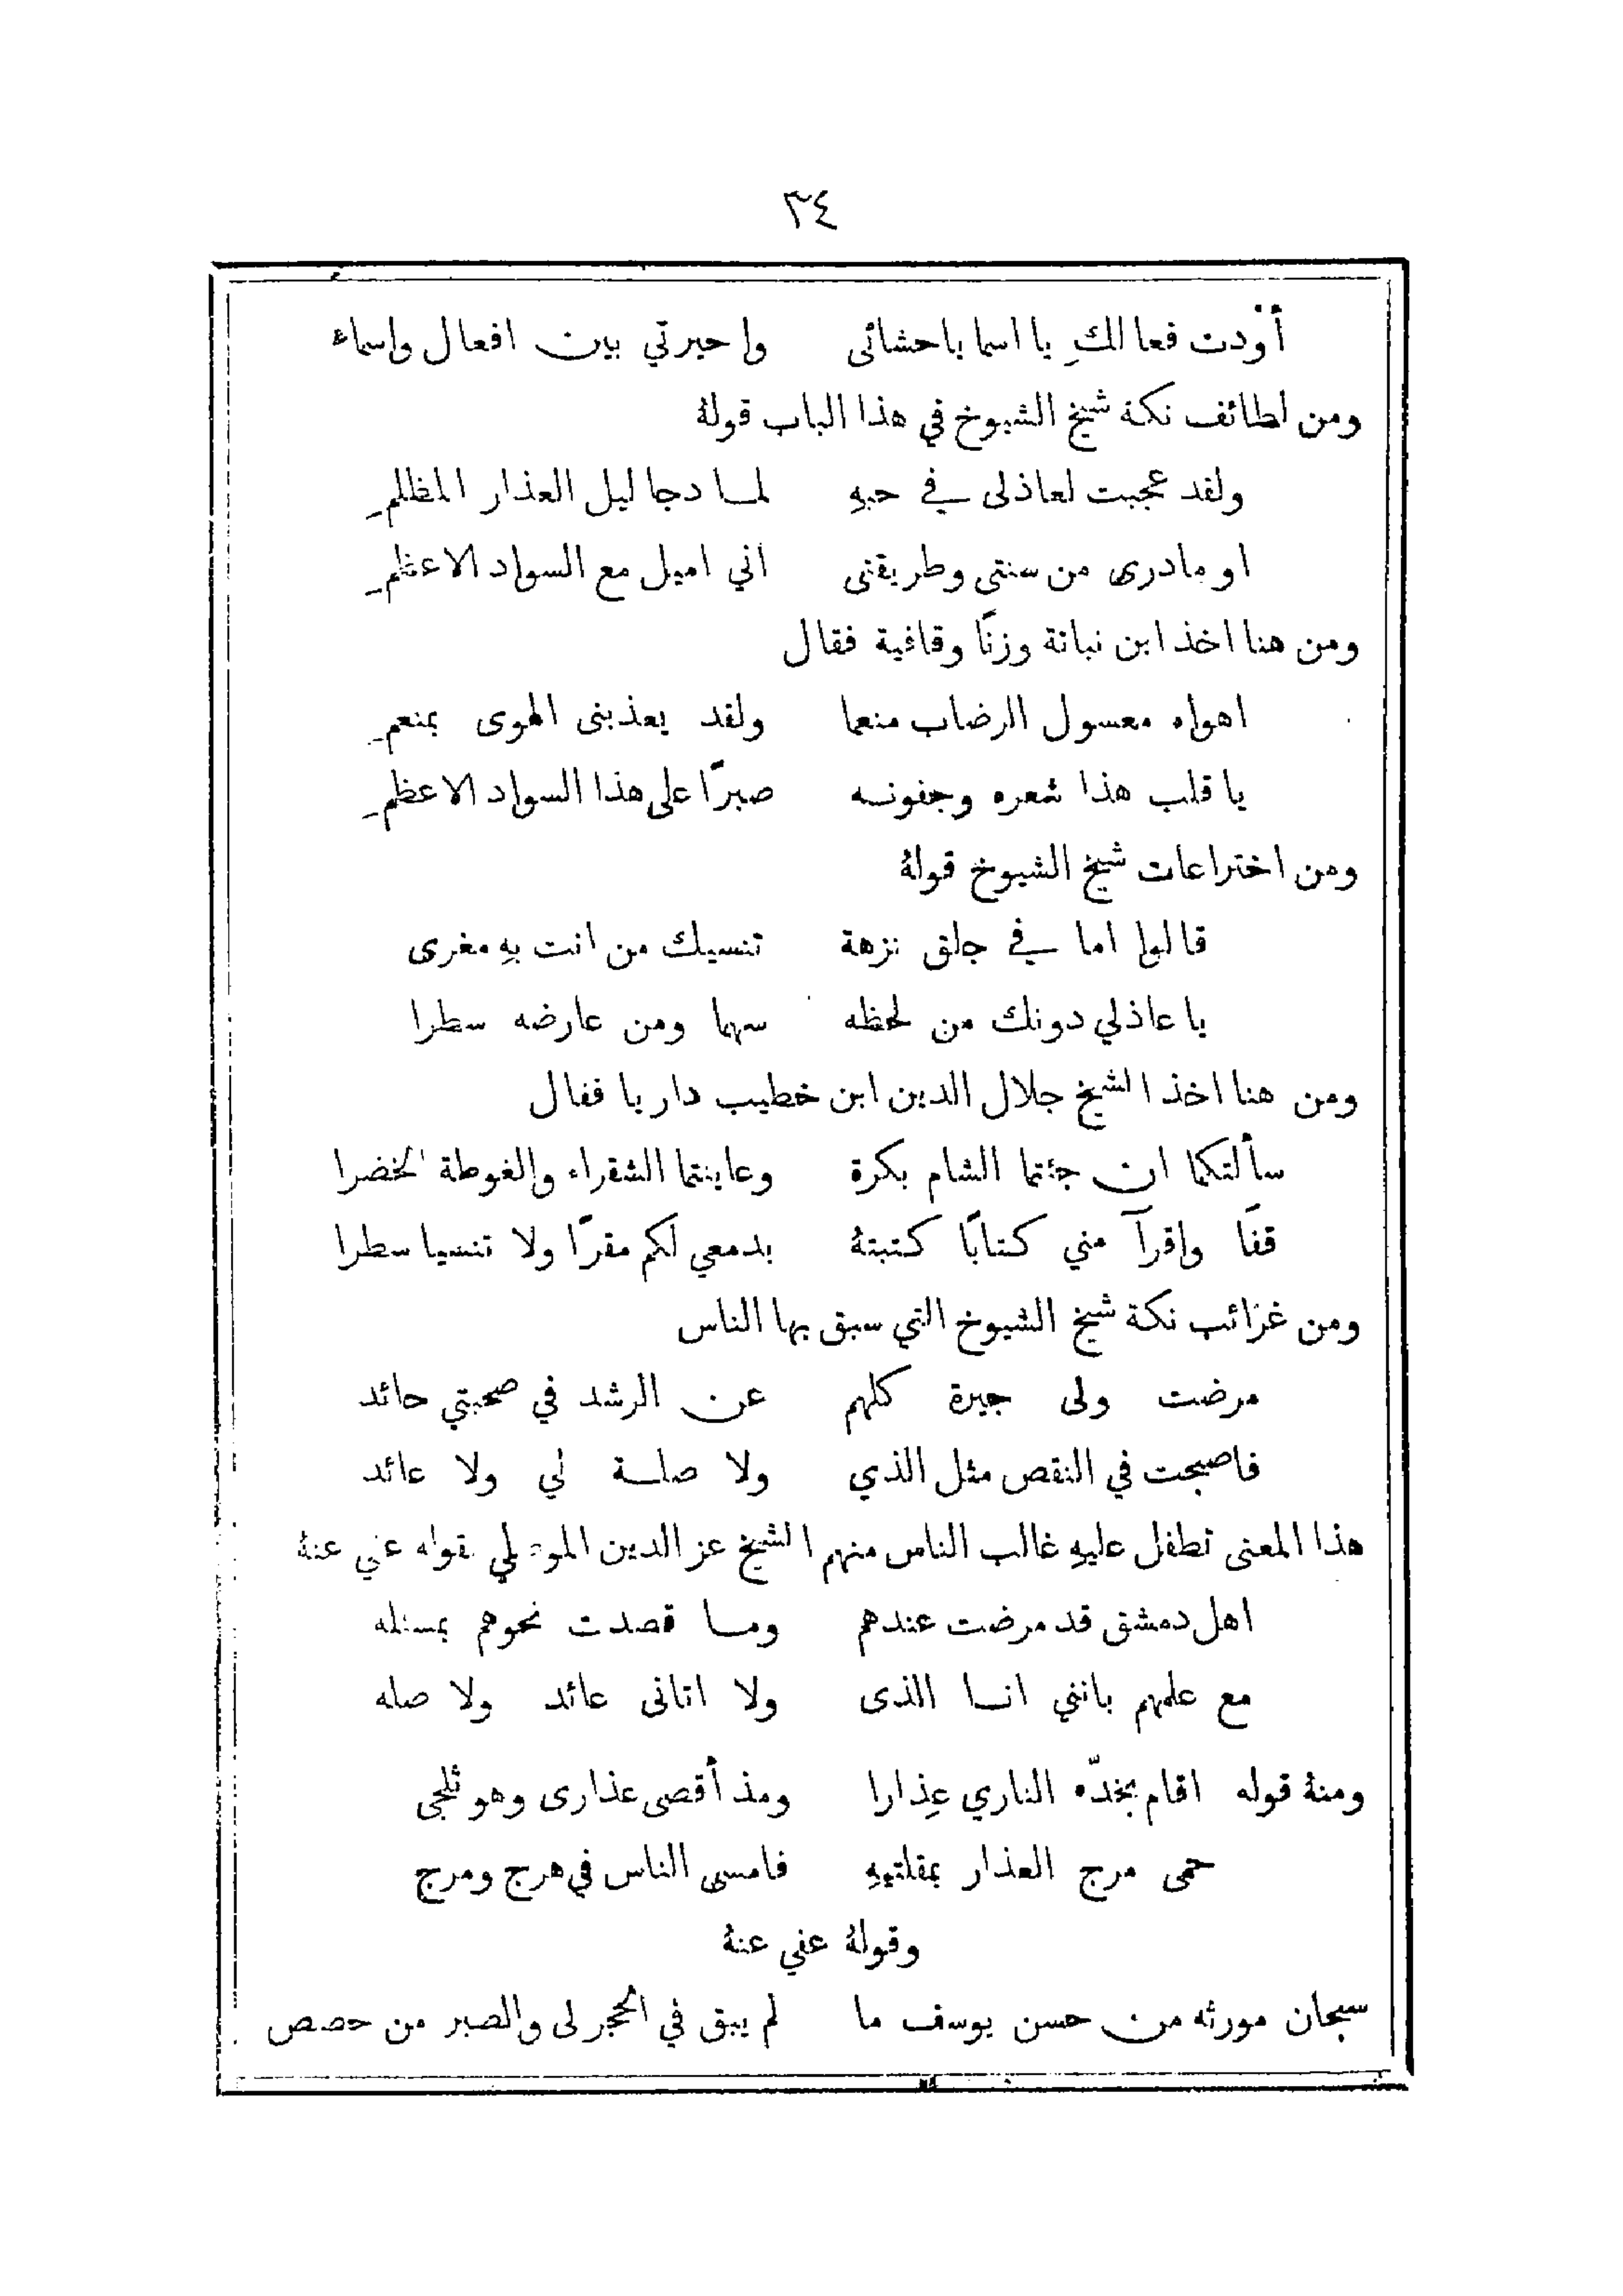 ٣٤
أوْدت فعالكِ يا اسما باحشائى واحيرتي بين افعال واسماء
ومن لطائف نكتة شيخ الشيوخ في هذا الباب قولهُ
ولقد عجبت لعاذلى في حبهِ لما دجا ليل العذار المظلمِ
او ما درى من سنتى وطريقتى اني اميل مع السواد الاعظمِ
ومن هنا اخذ ابن نباتة وزنًا وقافية فقال
اهواه معسول الرضاب منعما ولقد يعذبنى الهوى بمنعمِ
يا قلب هذا شعره وجفونه صبرًا على هذا السواد الاعظمِ
ومن اختراعات شيخ الشيوخ قولهُ
قالوا اما في جلق نزهة تنسيك من انت بهِ مغرى
يا عاذلي دونك من لحظه سهما ومن عارضه سطرا
ومن هنا اخذ الشيخ جلال الدين ابن خطيب داريا فقال
سألتكما ان جئتما الشام بكرة وعاينتما الشقراء والغوطة الخضرا
قفَا واقرآ مني كتابًا كتبتهُ بدمعي لكم مقرًا ولا تنسيا سطرا
ومن غرائب نكتة شيخ الشيوخ التي سبق بها الناس
مرضت ولى جيرة كلهم عن الرشد في صحبتي حائد
فاصبحت في النقص مثل الذي ولا صلة لي ولا عائد
هذا المعنى تطفل عليهِ غالب الناس منهم الشيخ عز الدين الموصلي بقوله عفي عنهُ
اهل دمشق قد مرضت عندهم وما قصدت نحوهم بمسئله
مع علمهم بانني انا الذى ولا اتانى عائد ولا صله
ومنهُ قوله اقام بخدّه الناري عِذارا ومذ أقصى عذارى وهو ثلجى
حمى مرج العذار بمقلتيهِ فامسى الناس في هرج ومرج
وقولهُ عفي عنهُ
سبحان مورثه من حسن يوسف ما لم يبق في الحجر لى والصبر من حصص